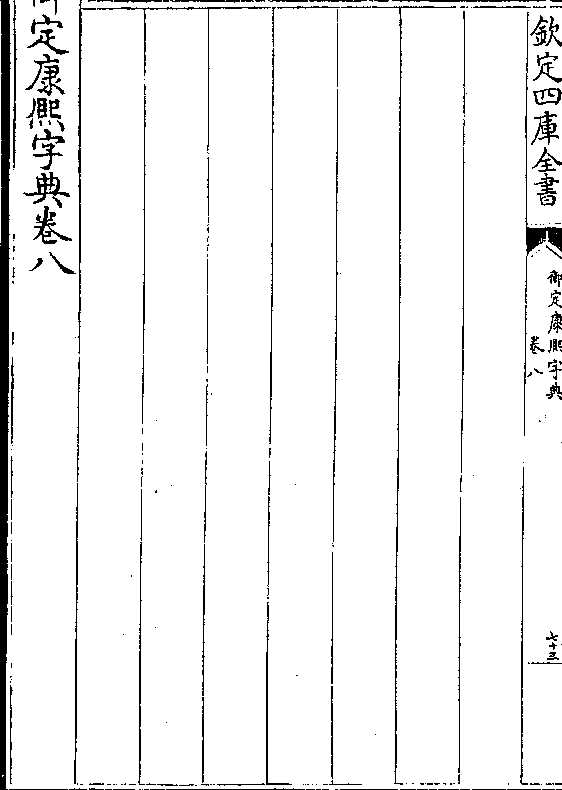 欽定四庫全書
御定康熙字典
卷八
七十三
御定康熙字典卷八